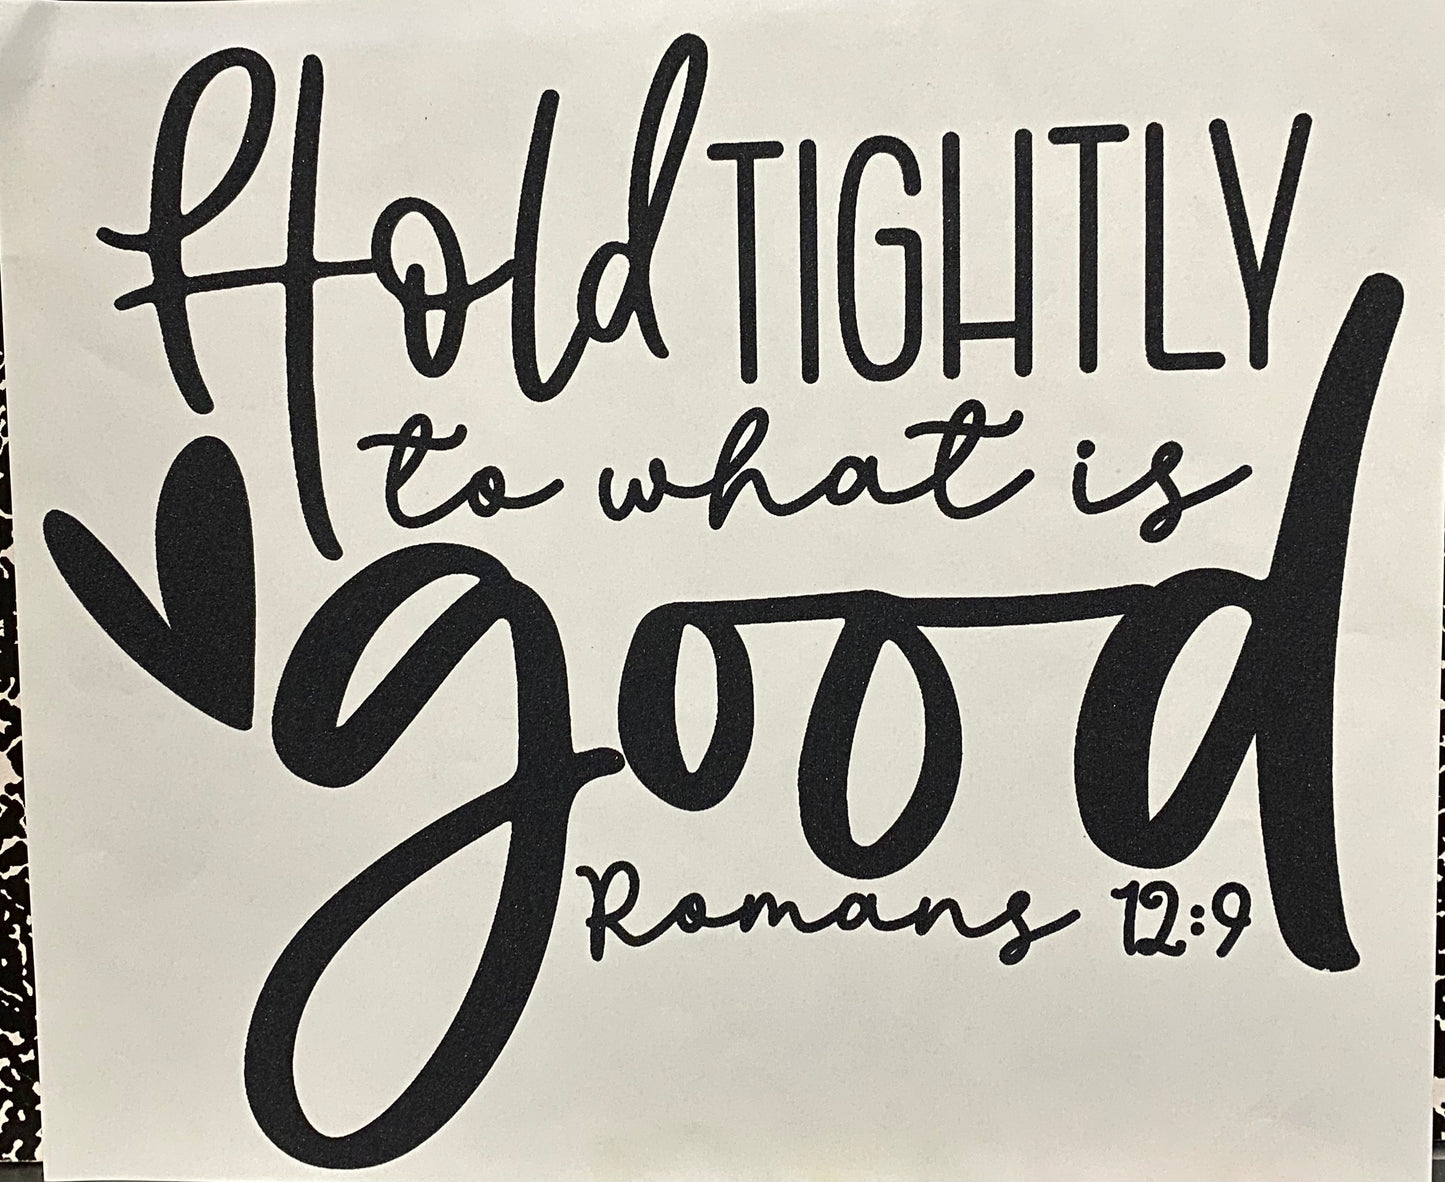 Hold TIGHTLY
to what is
good
Romans 12:9